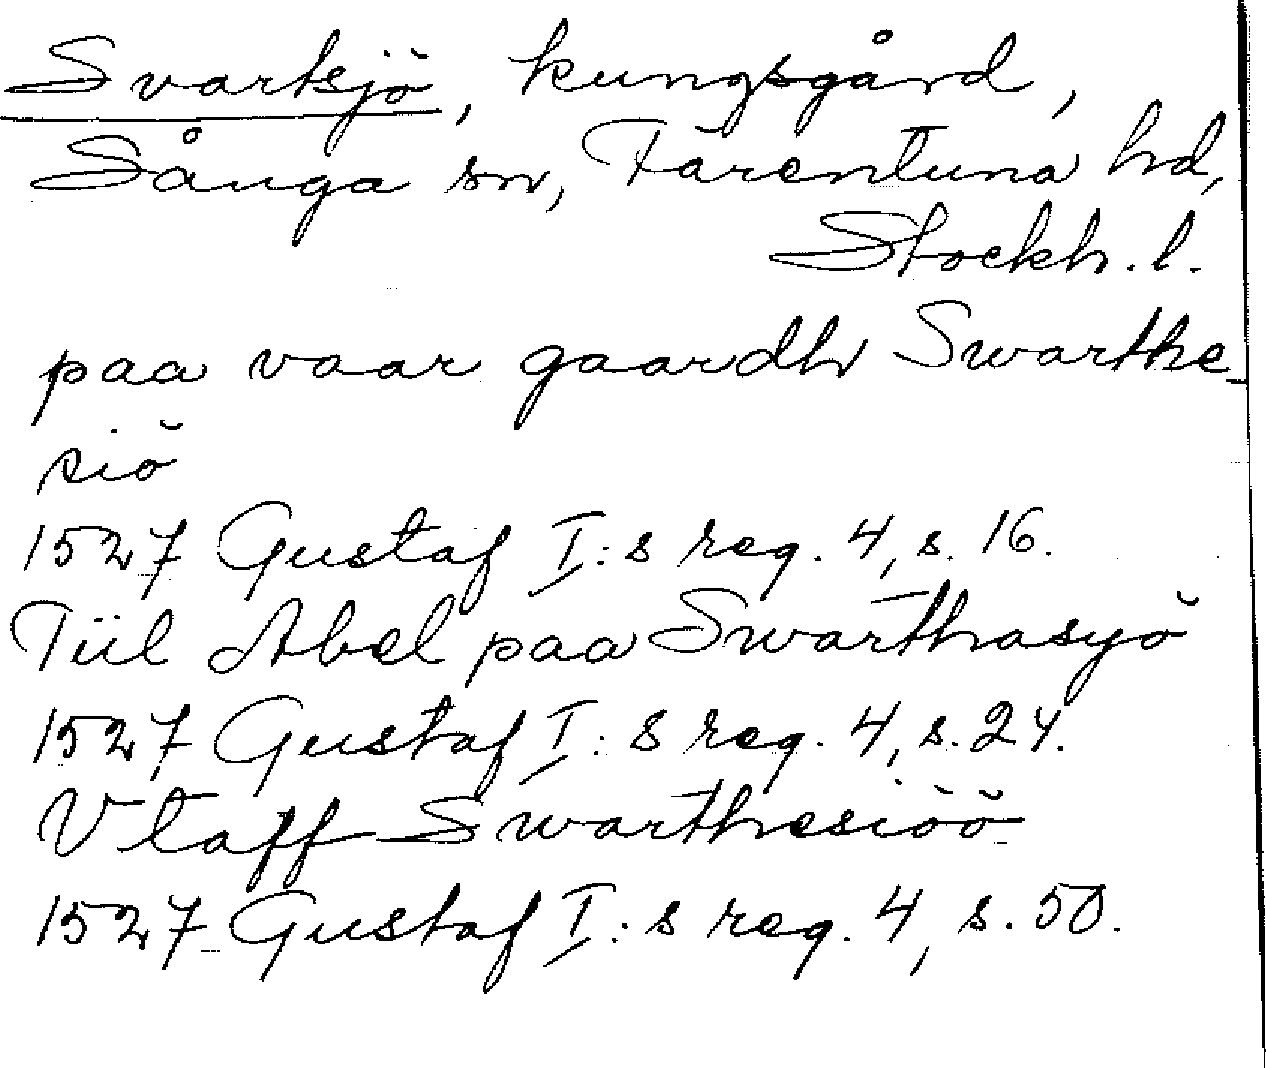 Svartsjö, kungsgård,
Sånga sn, Färentuna hd,
Stockh. l.
paa vaar gaardh Swarthe-
siö
1527 Gustaf I:s reg. 4, s. 16.
Tiil Abel paa Swarthasyö
1527 Gustaf I:s reg. 4, s. 24.
Vtaff Swarthesiöö
1527 Gustaf I:s reg. 4, s. 50.